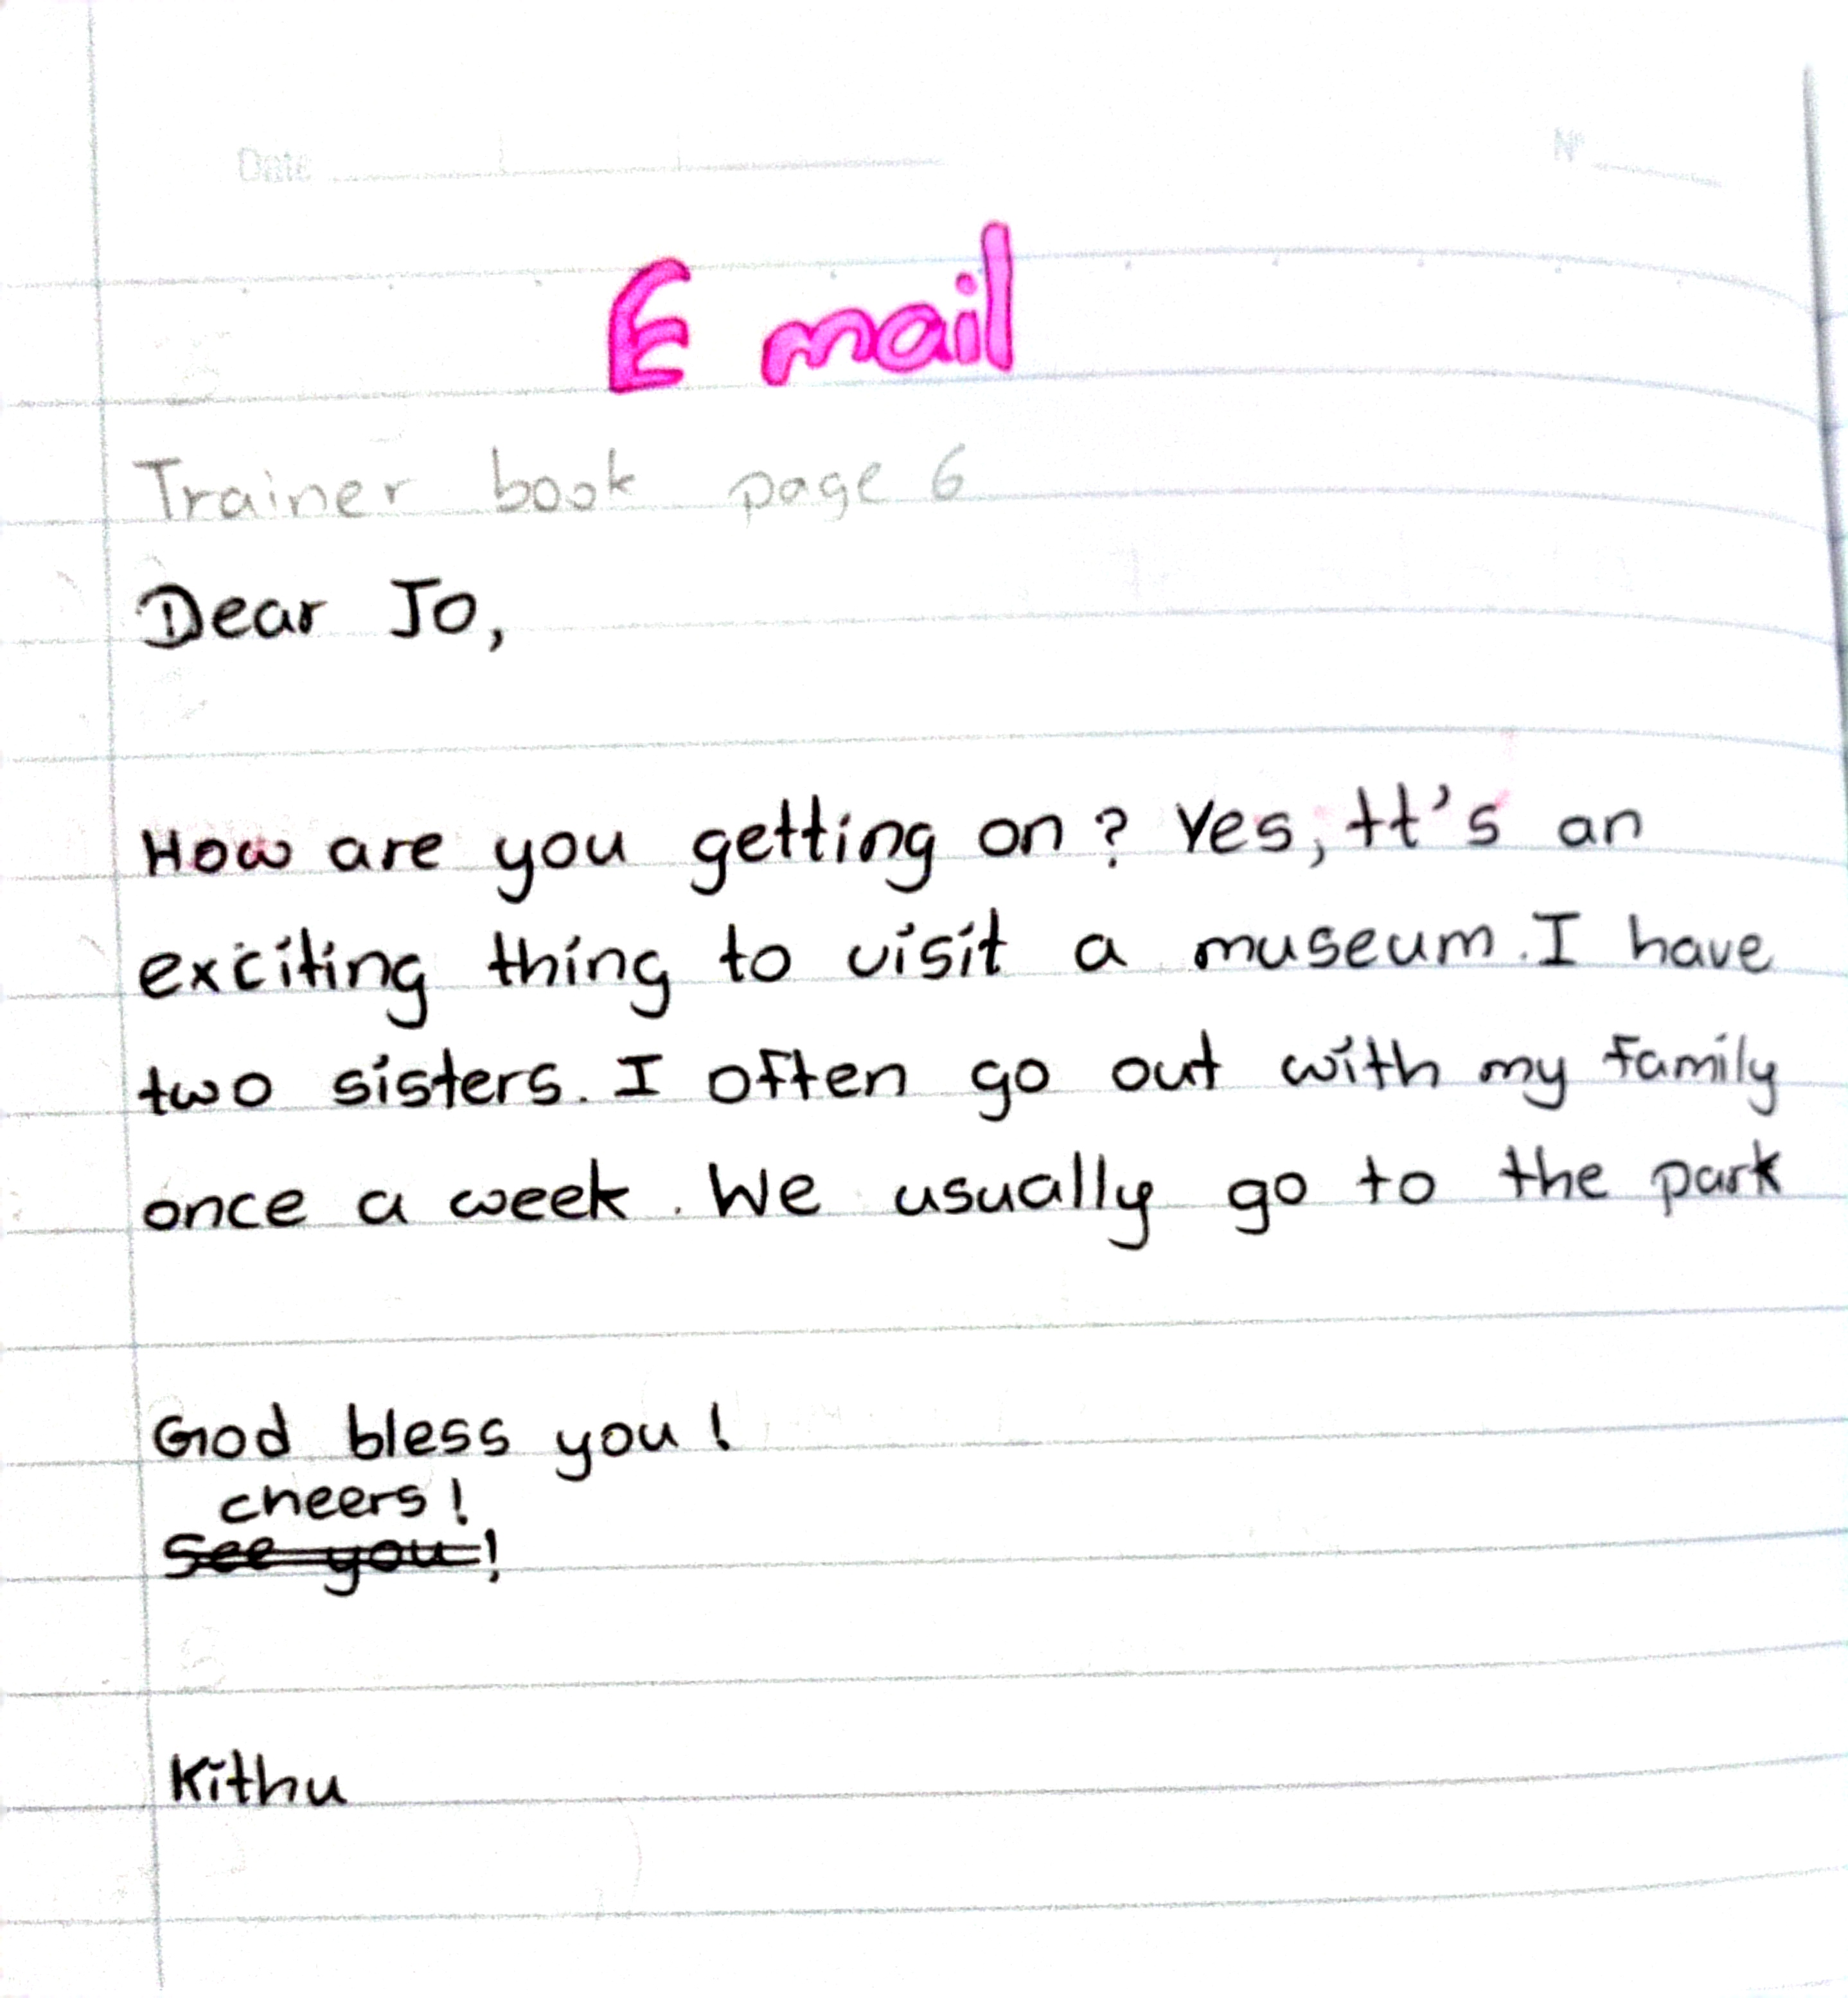 Date
Nº
E mail
Trainer book page 6
Dear Jo,
How are you getting on? Yes, It's an
exciting thing to visit a museum. I have
two sisters. I often go out with my family
once a week. We usually go to the park
God bless you!
cheers!
See you!
Kithu